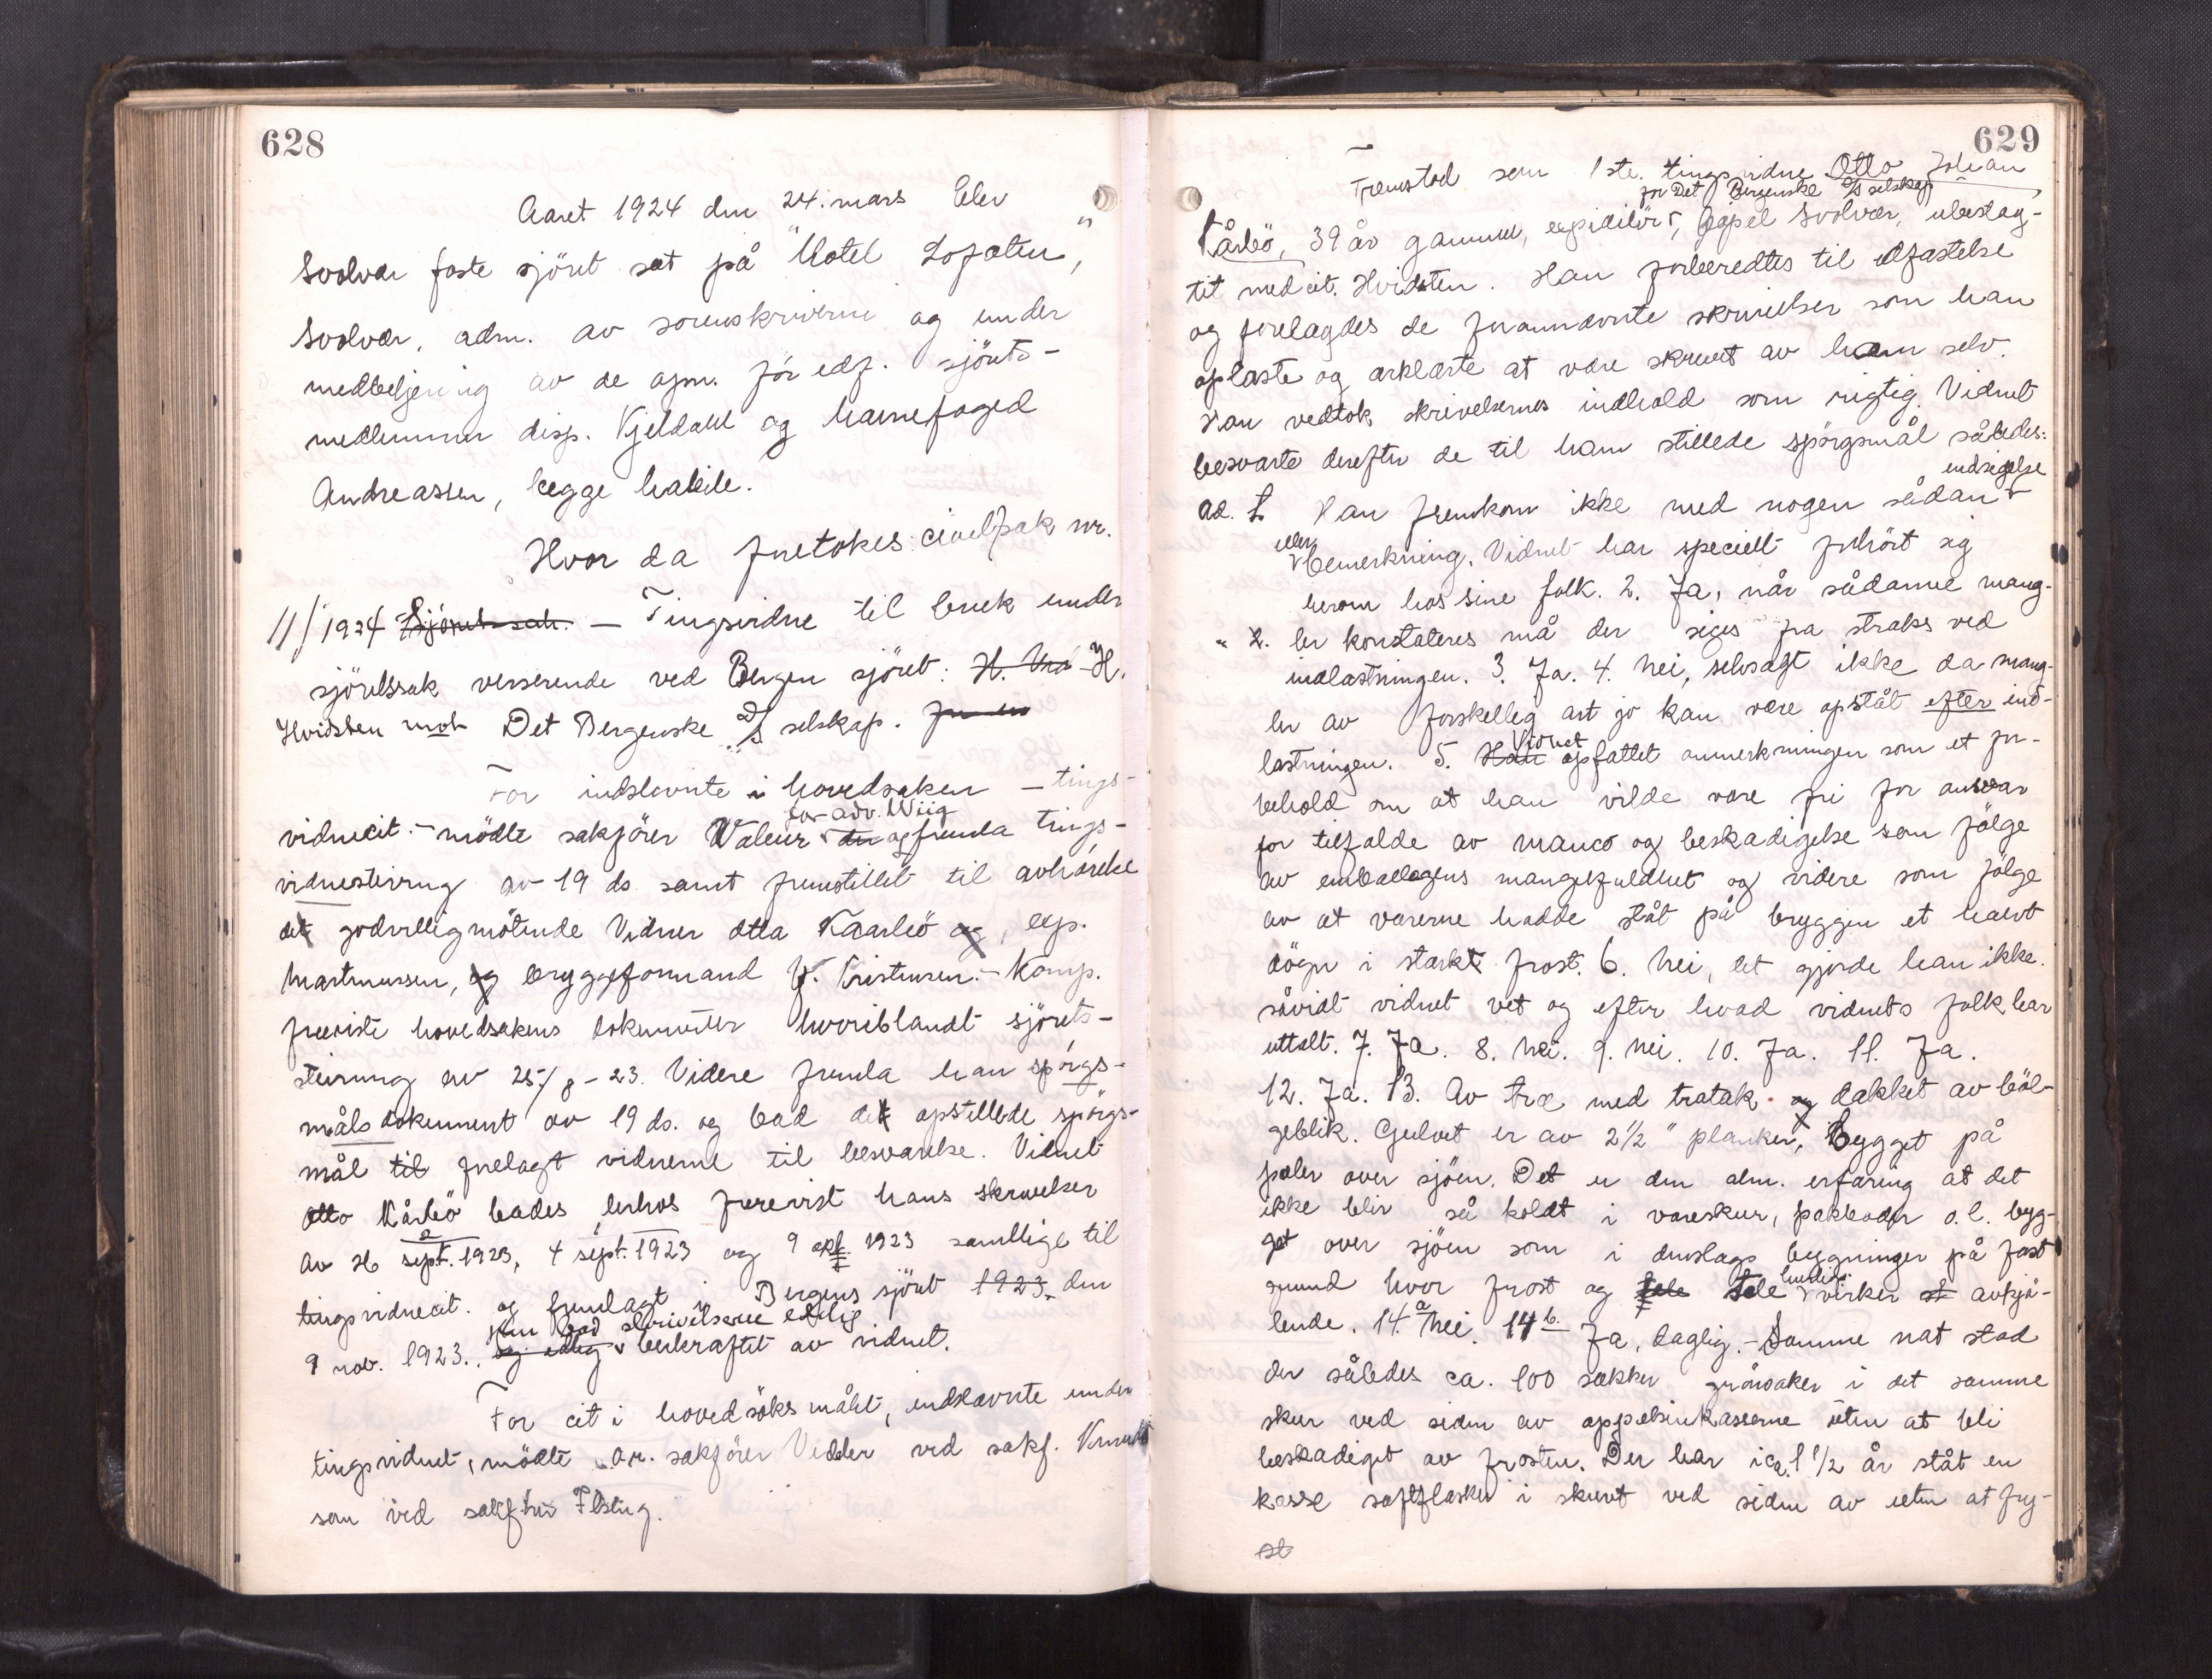 628
Aaret 1924 den 24. mars blev
Svolvær faste sjöret sat på "Hotel Lofoten",
Svolvær, adm. av sorenskriveren og under
medbetjening av de opn. før edf. sjörets-
medlemmer disp. Kjeldahl og havnefoged
Andreassen, begge habile.
Hvor da foretokes: civilsak nr.
11/1924 Sjöretssak. — Tingsvidne til bruk under
sjöretssak verserende ved Bergen sjöret: H. Hvi H.
Hvidsten mot Det Bergenske D/S selskap.
For indstevnte i hovedsaken – tings-
vidnecit. – mödte sakförer Waleur for adv. Wiig og fremla tings-
vidnestevning av 19 ds. samt fremstillet til avhörelse
det godvillig mötende Vidner Otto Kaarbö og, exp.
Martinussen, og bryggeformand P. Kristensen. – Komp.
foreviste hovedsakens dokumenter hvoriblandt sjörets-
stevning av 25/8 – 23. Videre fremla han spörgs-
målsdokument av 19 ds. og bad de opstillede spörgs-
mål til forelagt vidnerne til besvarelse. Vidnet
Otto Kårbö bades derhos forevist hans skrivelser
av 26 sept. 1923, 4 sept. 1923 og 9 okt. 1923 samtlige til
tingsvidnecit. og fremlagt i Bergens sjöret 1923 den
9 nov. 1923. og edlig som bad skrivelserne edelig bekræftet av vidnet.
For cit i hovedsöksmålet, indstevnte under
tingsvidnet, mödte o.r. sakförer Vedeler ved sakf. Knud
son ved sakförer
629
Fremstod som 1ste. tingsvidne Otto Johan
Kårbö, 39 år gammel, expeditör for Det Bergenske D/S selskap, Svolvær, ubeslæg-
tet med cit. Hvidsten. Han forberedtes til edfæstelse
og forelagdes de forannævnte skrivelser som han
oplæste og erklærte at være skrevet av ham selv.
Han vedtok skrivelsernes indhold som rigtig. Vidnet
besvarte derefter de til ham stillede spörgsmål således:
ad. 1. Han fremkom ikke med nogen sådan indsigelse
eller bemerkning. Vidnet har specielt forhört sig
herom hos sine folk. 2. Ja, når sådanne mang-
" 2. ler konstateres må der siges fra straks ved
indlastningen. 3. Ja. 4. Nei, selvsagt ikke da mang-
ler av forskellig art jo kan være opståt efter ind-
lastningen. 5. Han Vidnet opfattet anmerkningen som et for-
behold om at han vilde være fri for ansvar
for tilfælde av manco og beskadigelse som fölge
av emballagens mangefuldhet og videre som fölge
av at varerne hadde ståt på bryggen et halvt
dögn i stærk frost. 6. Nei, det gjorde han ikke.
såvidt vidnet vet og efter hvad vidnets folk har
uttalt. 7. Ja. 8. Nei. 9. Nei. 10. Ja. 11. Ja.
12. Ja. 13. Av træ med trætak og dækket av böl-
geblik. Gulvet er av 2 1/2 " planker, bygget på
pæler over sjöen. Det er den alm. erfaring at det
ikke blir så koldt i vareskur, pakboder o.l. byg-
get over sjöen som i denslags bygninger på fast
grund hvor frost og tele tele virker at avkjö-
lende. 14 a Nei. 14 b. Ja, daglig. – Samme nat stod
der således ca. 100 sækker grönsaker i det samme
skur ved siden av appelsinkasserne uten at bli
beskadiget av frosten. Der har i ca. 1 1/2 år ståt en
kasse saftflasker i skuret ved siden av uten at fry-
st